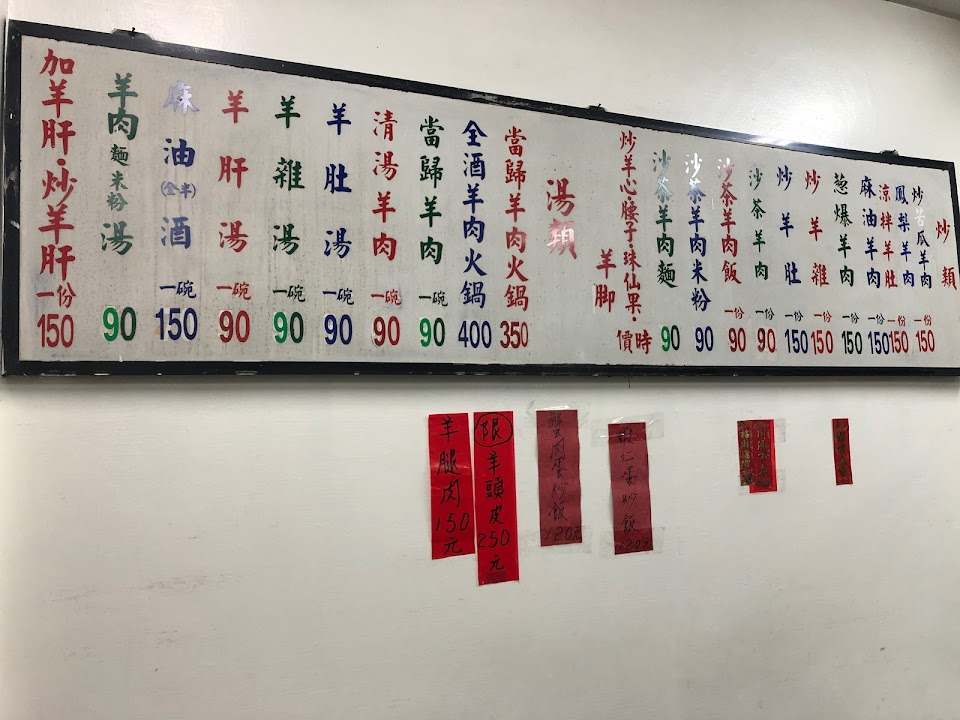 炒類
炒苦瓜羊肉 一份 150
鳳梨羊肉
涼拌羊肚 一份 150
麻油羊肉 一份 150
葱爆羊肉 一份 150
炒羊雜 一份 150
炒羊肚 一份 150
沙茶羊肉 一份 90
沙茶羊肉飯 一份 90
沙茶羊肉米粉 90
沙茶羊肉麵 90
炒羊心·腰子·珠仙果· 時價
羊脚
湯類
當歸羊肉火鍋 350
全酒羊肉火鍋 400
當歸羊肉 一碗 90
清湯羊肉 一碗 90
羊肚湯 一碗 90
羊雜湯 一碗 90
羊肝湯 一碗 90
麻油(全半)酒 一碗 150
羊肉麵米粉湯 90
加羊肝·炒羊肝 一份 150
蝦仁蛋炒飯 120元
蟹肉蛋炒飯 120元
限羊頭皮250元
羊腿肉150元